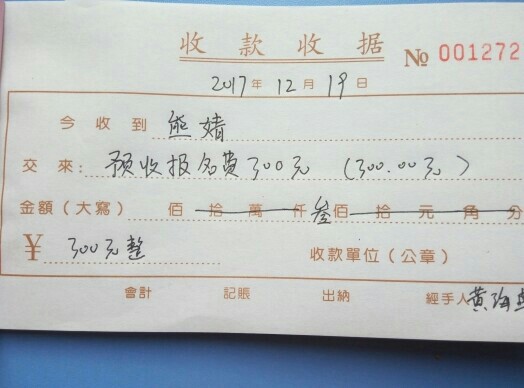 收款收据 № 001272
2017年12月19日
今收到 熊婧
交來: 预收报名费300元 (300.00元)
金額(大寫) 佰拾萬仟叁佰拾元角分
¥ 300元整 收款單位(公章)
會計 記賬 出納 經手人 黄海